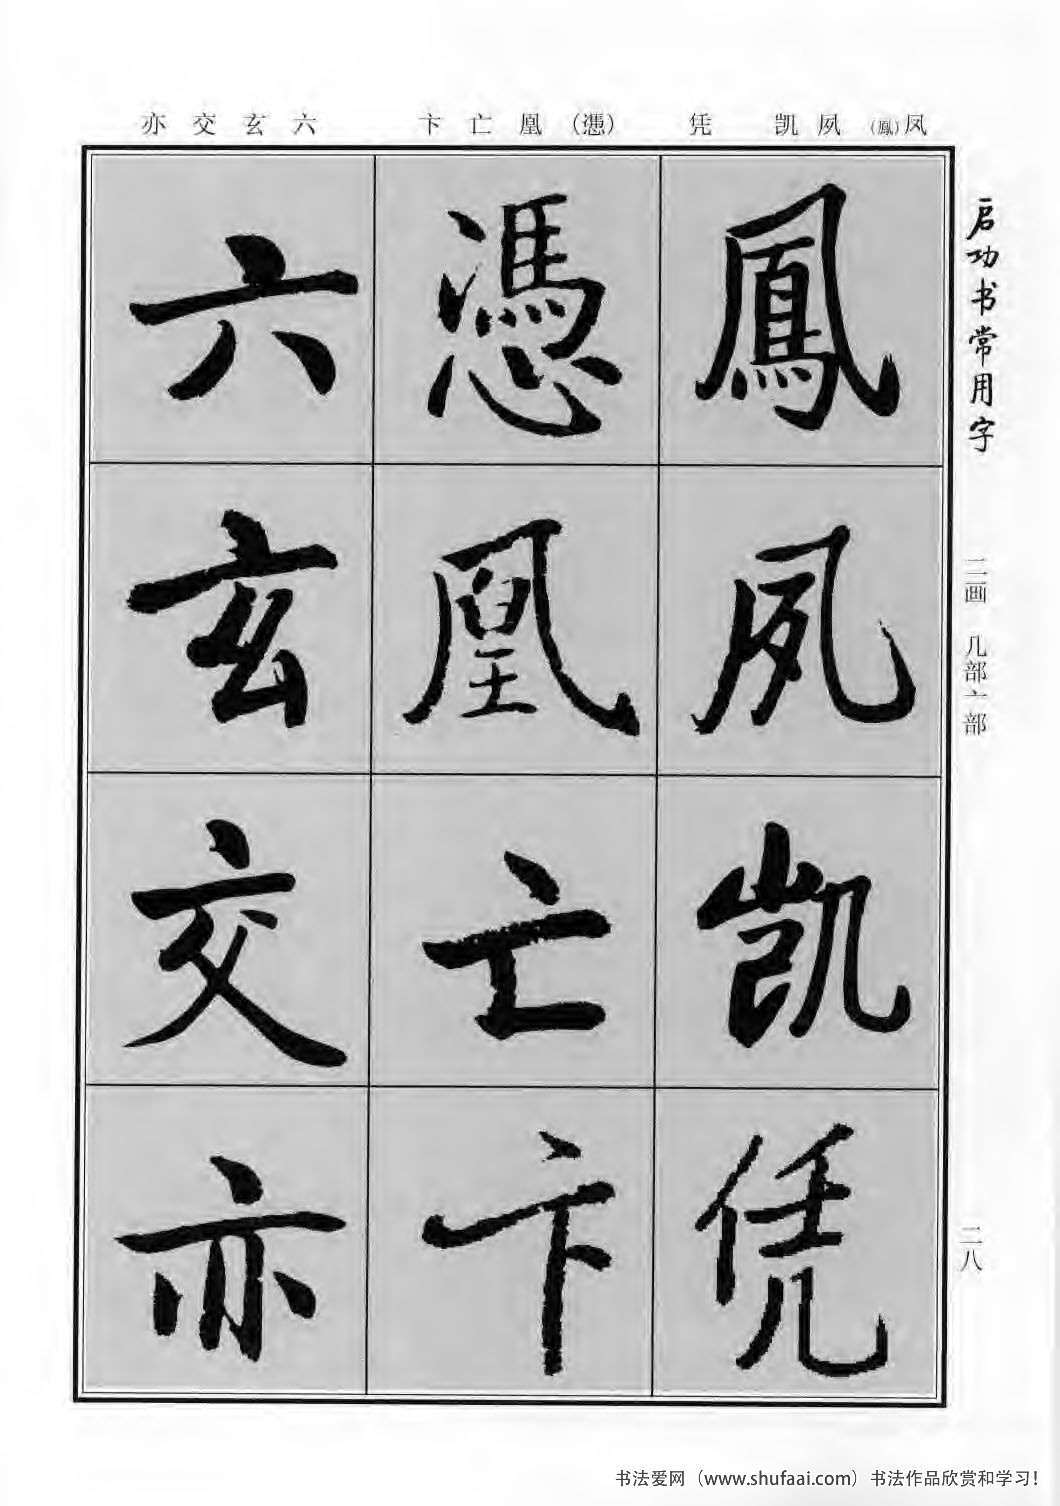 亦 交 玄 六 卞 亡 凰 (憑) 凭 凯 夙 (鳳) 凤
鳳
夙
凯
凭
憑
凰
亡
卞
六
玄
交
亦
启功书常用字
二画 几部 亠部
二八
书法爱网（www.shufaai.com）书法作品欣赏和学习!